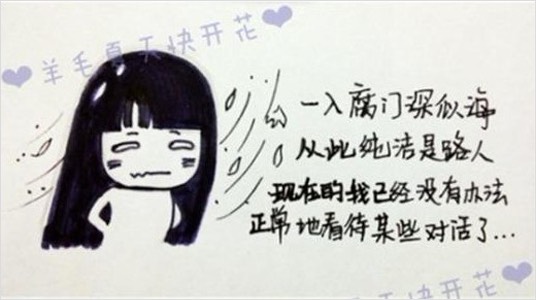 羊毛夏不快开花
一入腐门深似海
从此纯洁是路人
现在的我已经没有办法
正常地看待某些对话了...
快开花